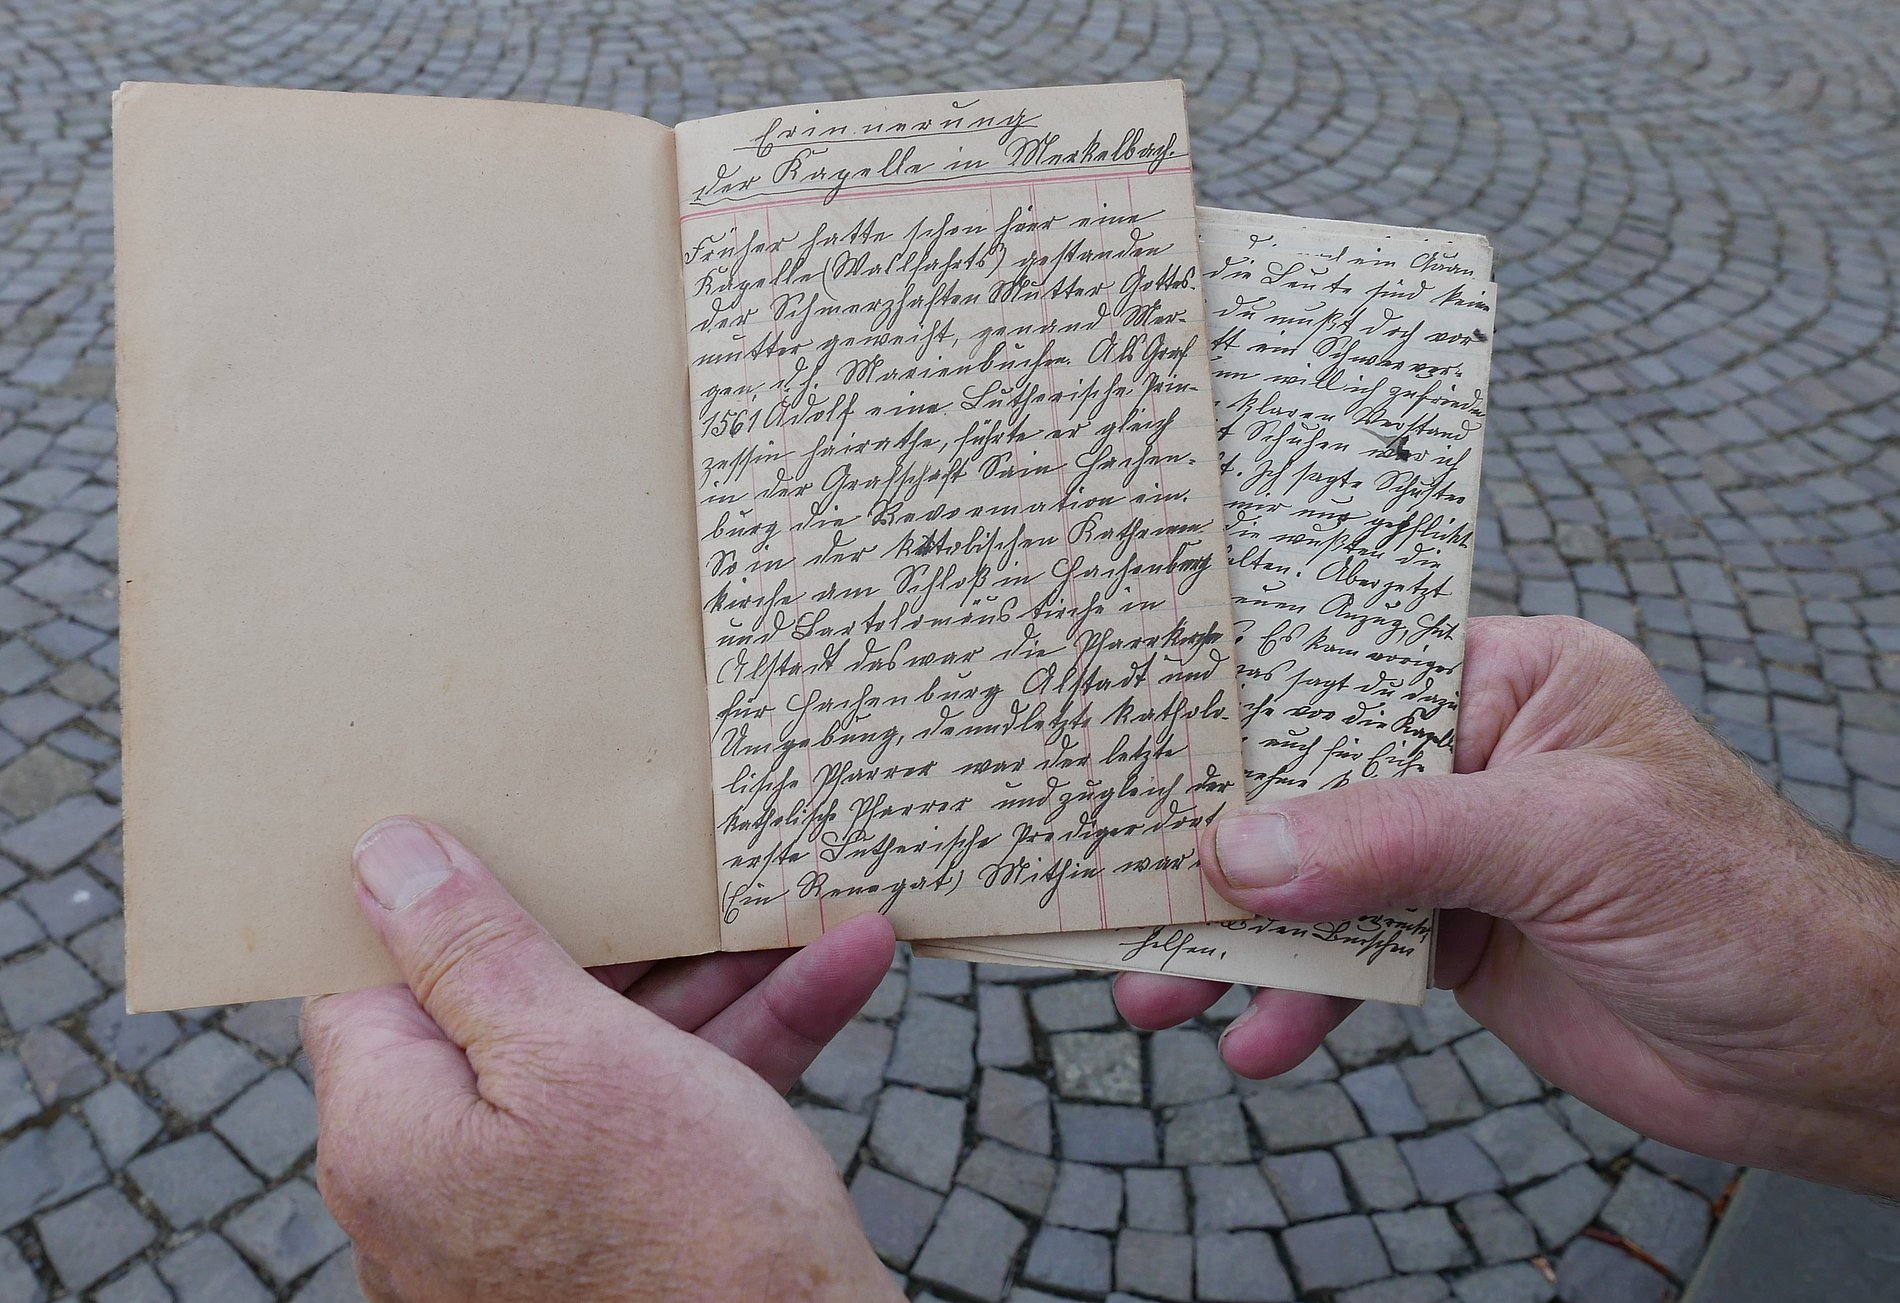 Erinnerung
der Kapelle in Merkelbach.
Früher hatte schon hier eine
Kapelle (Wallfahrts) gestanden
der Schmerzhaften Mutter Gottes-
mutter geweiht, genand Mer-
gen, d.h. Marienbuchen. Als Graf
1561 Adolf eine Lutherische Prin-
zessin hairathe, führte er gleich
in der Grafschaft Sain Hachen-
burg die Revormation ein.
So in der katolischen Kathrinen
kirche am Schloß in Hachenburg
und Bartolomäus kirche in
Alstadt das war die Pfarrkirche
für Hachenburg Alstadt und
Umgebung, de letzte katholo-
lische Pfarrer war der letzte
katholische Pfarrer und zugleich der
erste Lutherische Prediger dort
(Ein Renegat) Mithin war
ein
die Leute sind keine
du mußt doch vor
ein Schwerver-
will ich zufrieden
klaren Verstand
Schuhen war ich
Ich sagte Schuster
mir nur geflickt
die wußten die
Aber jetzt
Anzug, Hut
Es kam voriges
was sagt du dazu
vor die Kapell-
auch für Eich-
den Burschen
helfen.